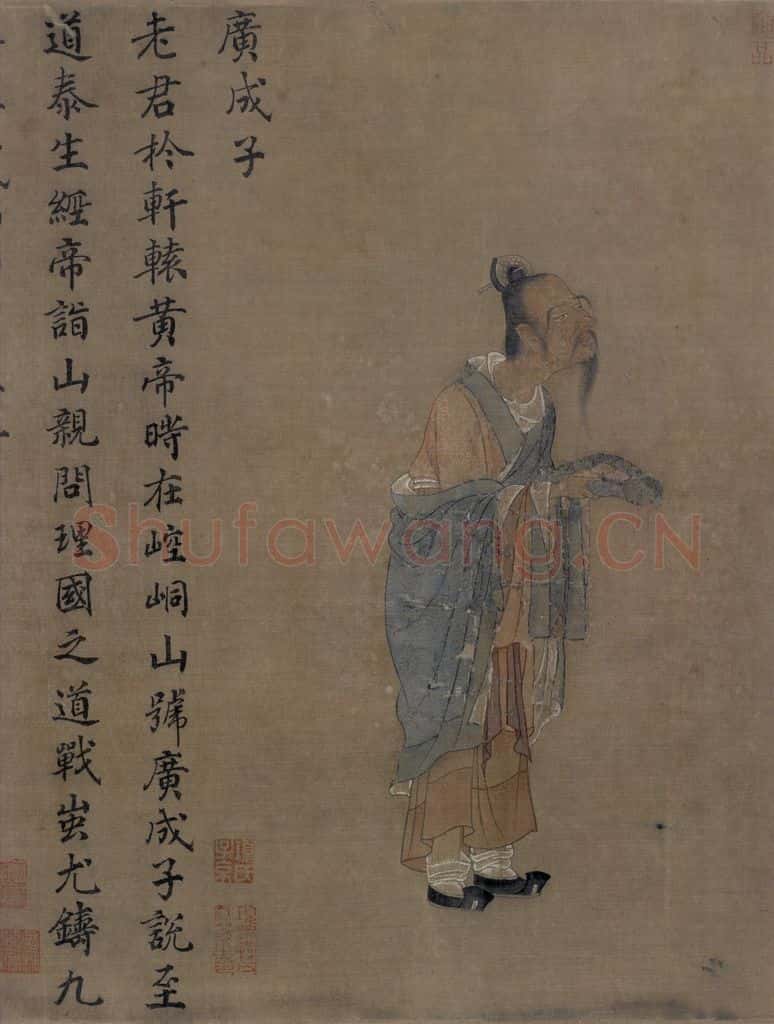 廣成子
老君扵軒轅黄帝時在崆峒山號廣成子説至
道泰生經帝詣山親問理國之道戰蚩尤鑄九
Shufawang.CN